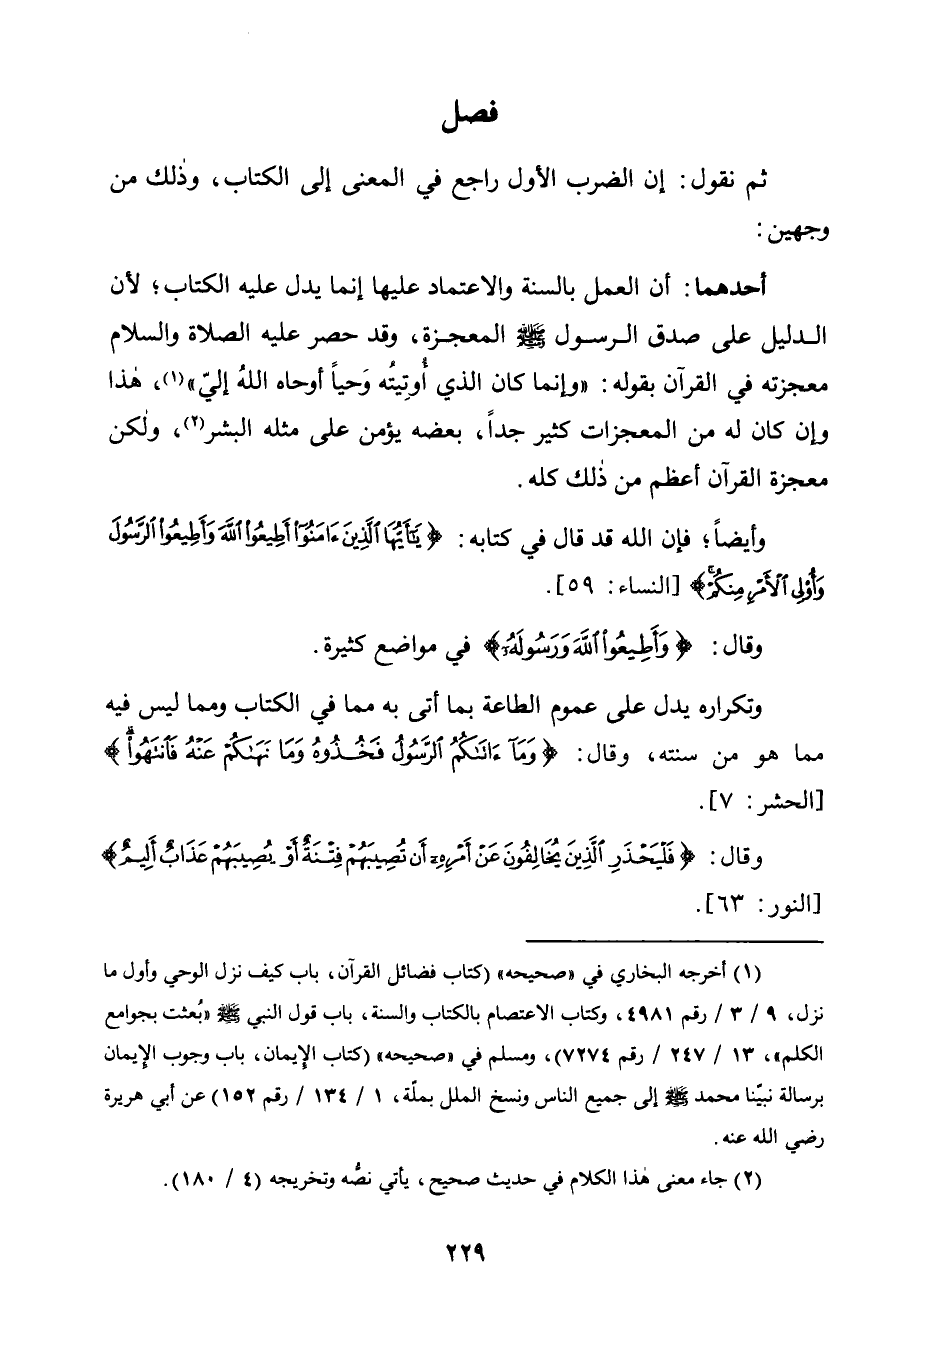 فصل
ثم نقول: إن الضرب الأول راجع في المعنى إلى الكتاب، وذٰلك من
وجهين:
أحدهما: أن العمل بالسنة والاعتماد عليها إنما يدل عليه الكتاب؛ لأن
الـدليل على صدق الـرسـول ﷺ المعجـزة، وقد حصر عليه الصلاة والسلام
معجزته في القرآن بقوله: «وإنما كان الذي أُوتِيتُه وَحياً أوحاه اللهُ إليّ»(١)، هٰذا
وإن كان له من المعجزات كثير جداً، بعضه يؤمن على مثله البشر(٢)، ولٰكن
معجزة القرآن أعظم من ذٰلك كله.
وأيضاً؛ فإن الله قد قال في كتابه: ﴿يَٰٓأَيُّهَا ٱلَّذِينَ ءَامَنُوٓا۟ أَطِيعُوا۟ ٱللَّهَ وَأَطِيعُوا۟ ٱلرَّسُولَ
وَأُو۟لِى ٱلْأَمْرِ مِنكُمْ ۖ﴾ [النساء: ٥٩].
وقال: ﴿وَأَطِيعُوا۟ ٱللَّهَ وَرَسُولَهُۥ﴾ في مواضع كثيرة.
وتكراره يدل على عموم الطاعة بما أتى به مما في الكتاب ومما ليس فيه
مما هو من سنته، وقال: ﴿وَمَآ ءَاتَىٰكُمُ ٱلرَّسُولُ فَخُذُوهُ وَمَا نَهَىٰكُمْ عَنْهُ فَٱنتَهُوا۟ ۚ﴾
[الحشر: ٧].
وقال: ﴿فَلْيَحْذَرِ ٱلَّذِينَ يُخَالِفُونَ عَنْ أَمْرِهِۦٓ أَن تُصِيبَهُمْ فِتْنَةٌ أَوْ يُصِيبَهُمْ عَذَابٌ أَلِيمٌ﴾
[النور: ٦٣].
(١) أخرجه البخاري في «صحيحه» (كتاب فضائل القرآن، باب كيف نزل الوحي وأول ما
نزل، ٩ / ٣ / رقم ٤٩٨١، وكتاب الاعتصام بالكتاب والسنة، باب قول النبي ﷺ «بُعثت بجوامع
الكلم»، ١٣ / ٢٤٧ / رقم ٧٢٧٤)، ومسلم في «صحيحه» (كتاب الإيمان، باب وجوب الإيمان
برسالة نبيّنا محمد ﷺ إلى جميع الناس ونسخ الملل بملّة، ١ / ١٣٤ / رقم ١٥٢) عن أبي هريرة
رضي الله عنه.
(٢) جاء معنى هٰذا الكلام في حديث صحيح، يأتي نصُّه وتخريجه (٤ / ١٨٠).
٢٢٩